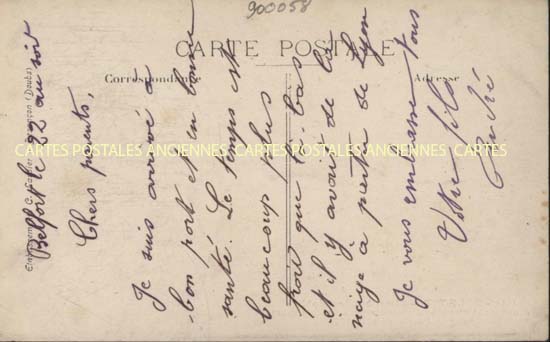 900058
CARTE POSTALE
Correspondance
Adresse
CARTES POSTALES ANCIENNES CARTES POSTALES ANCIENNES CARTES
Besançon (Doubs)
Belfort le 22 au soir
Chers parents,
Je suis arrivé à
bon port et en bonne
santé. Le temps est
beaucoup plus
froid que là-bas
et il y avait de la
neige à partir de Lyon
Je vous embrasse tous
Votre fils
André